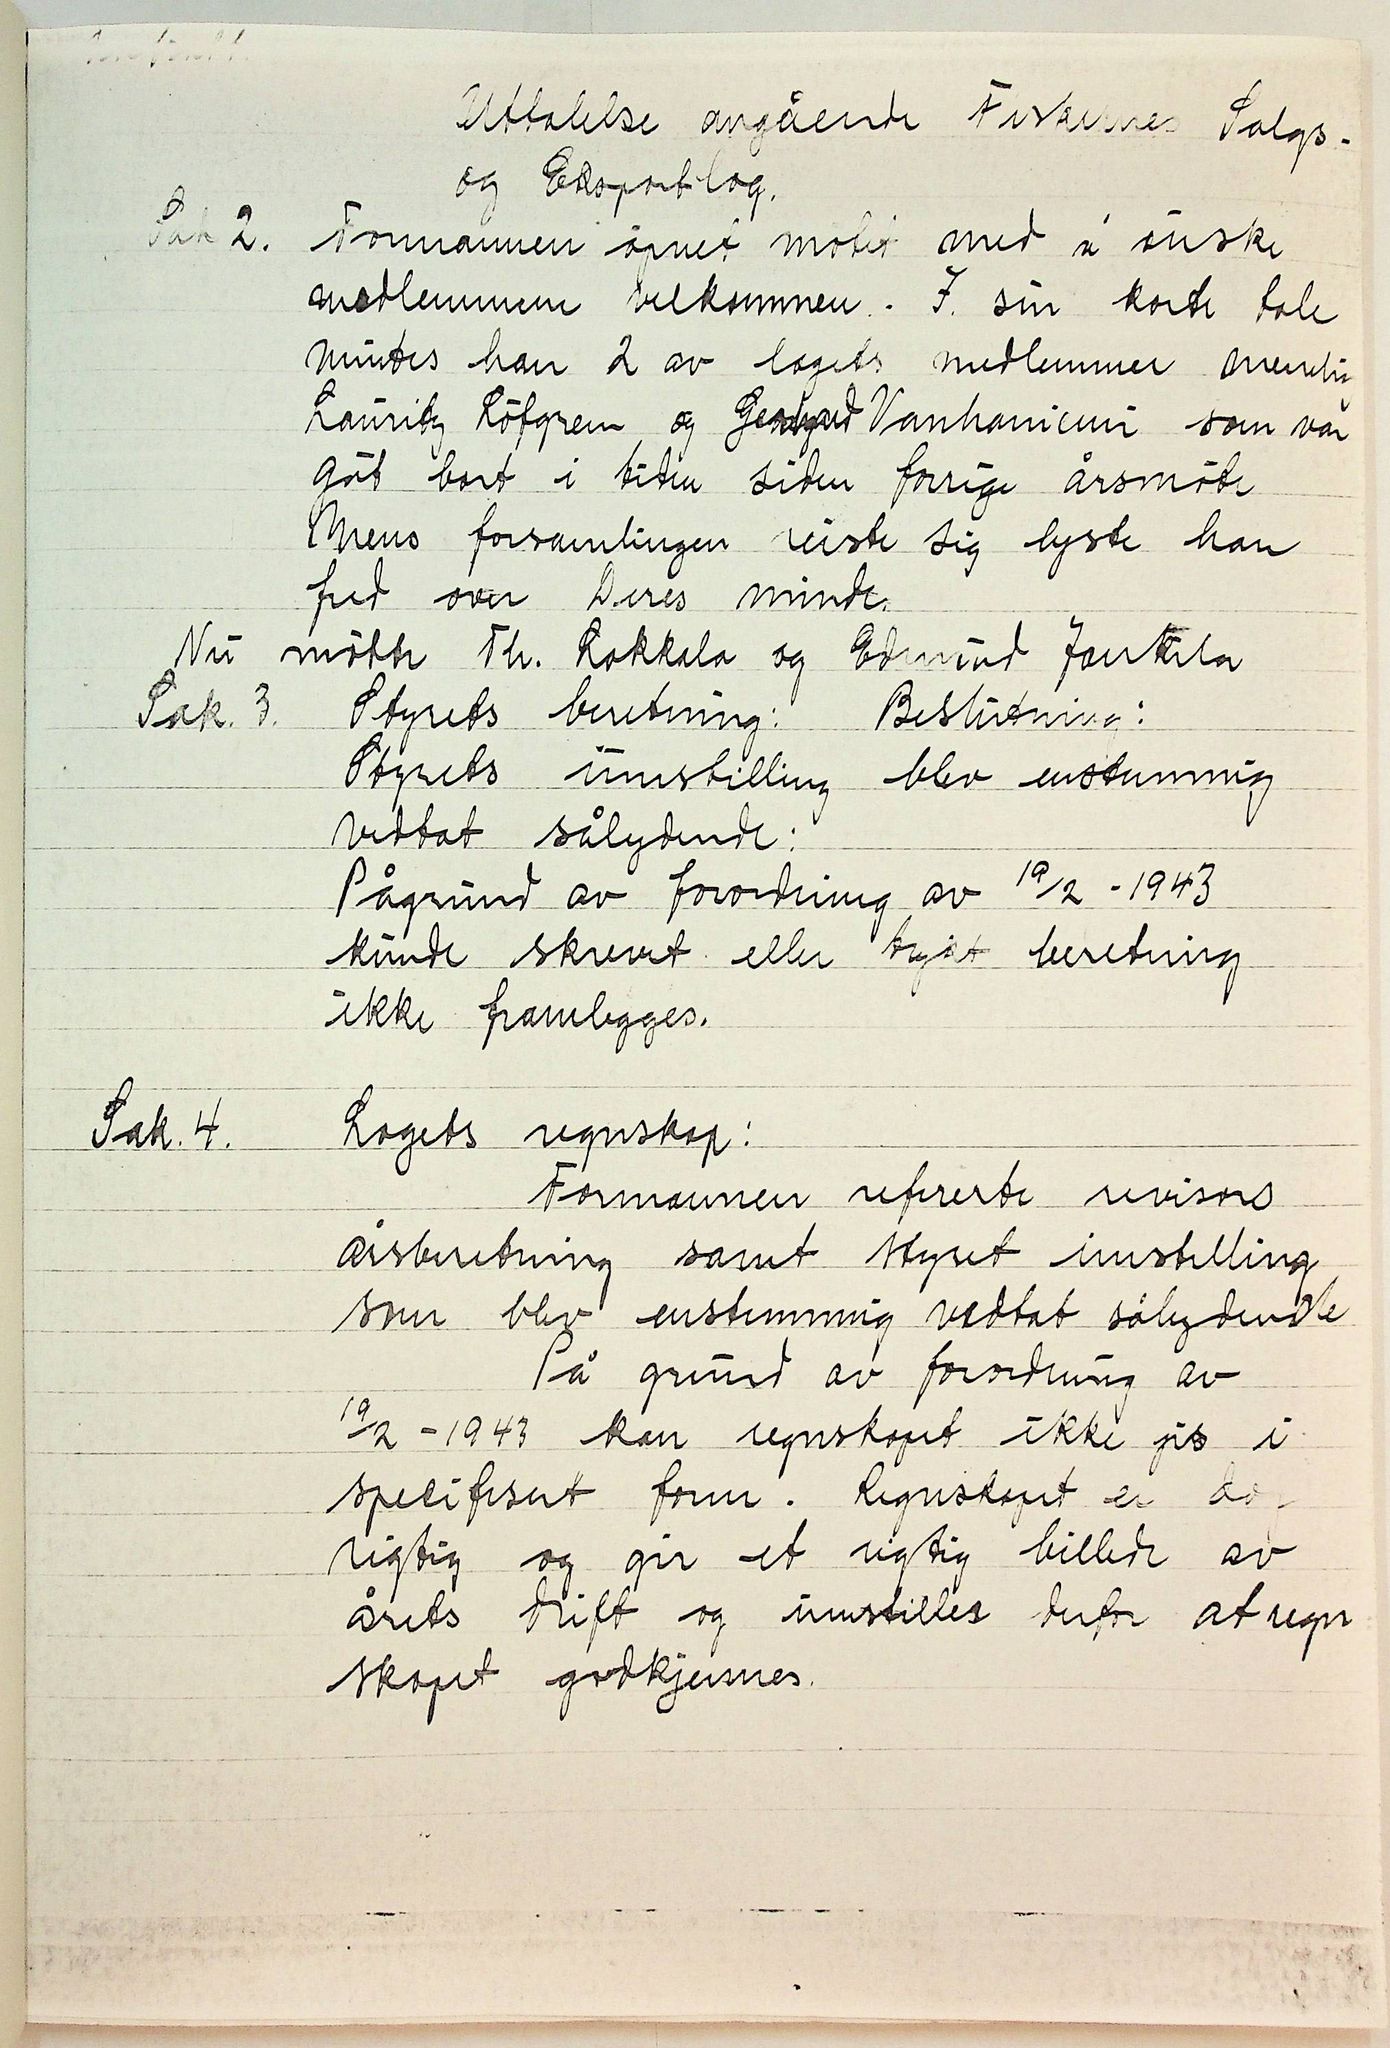 Uttalelse angående Fiskernes Salgs-
og Eksportlag.
Sak 2. Formannen åpnet mötet med å önske
medlemmene velkommen. I sin korte tale
mintes han 2 av lagets medlemmer nemlig
Lauritz Löfgren og Vanhanieumi som var
gåt bort i tiden siden forrige årsmöte
Mens forsamlingen reiste sig lyste han
fred over Deres minde.
Nu mötte Th. Lakkala og Edmund Jantila
Sak. 3. Styrets beretning: Beslutning:
Styrets innstilling blev enstemmig
vedtat sålydende:
Pågrund av forordning av 19/2 - 1943
kunde skrevet eller trykt beretning
ikke framlegges.
Sak. 4. Lagets regnskap:
Formannen refererte revisors
årsberetning samt styret innstilling
som blev enstemmig vedtat sålydende
På grund av forordning av
19/2 - 1943 kan regnskapet ikke gis i
spesifisert form. Regnskapet er dog
rigtig og gir et rigtig billede av
årets drift og innstilles derfor at regn
skapet godkjennes.